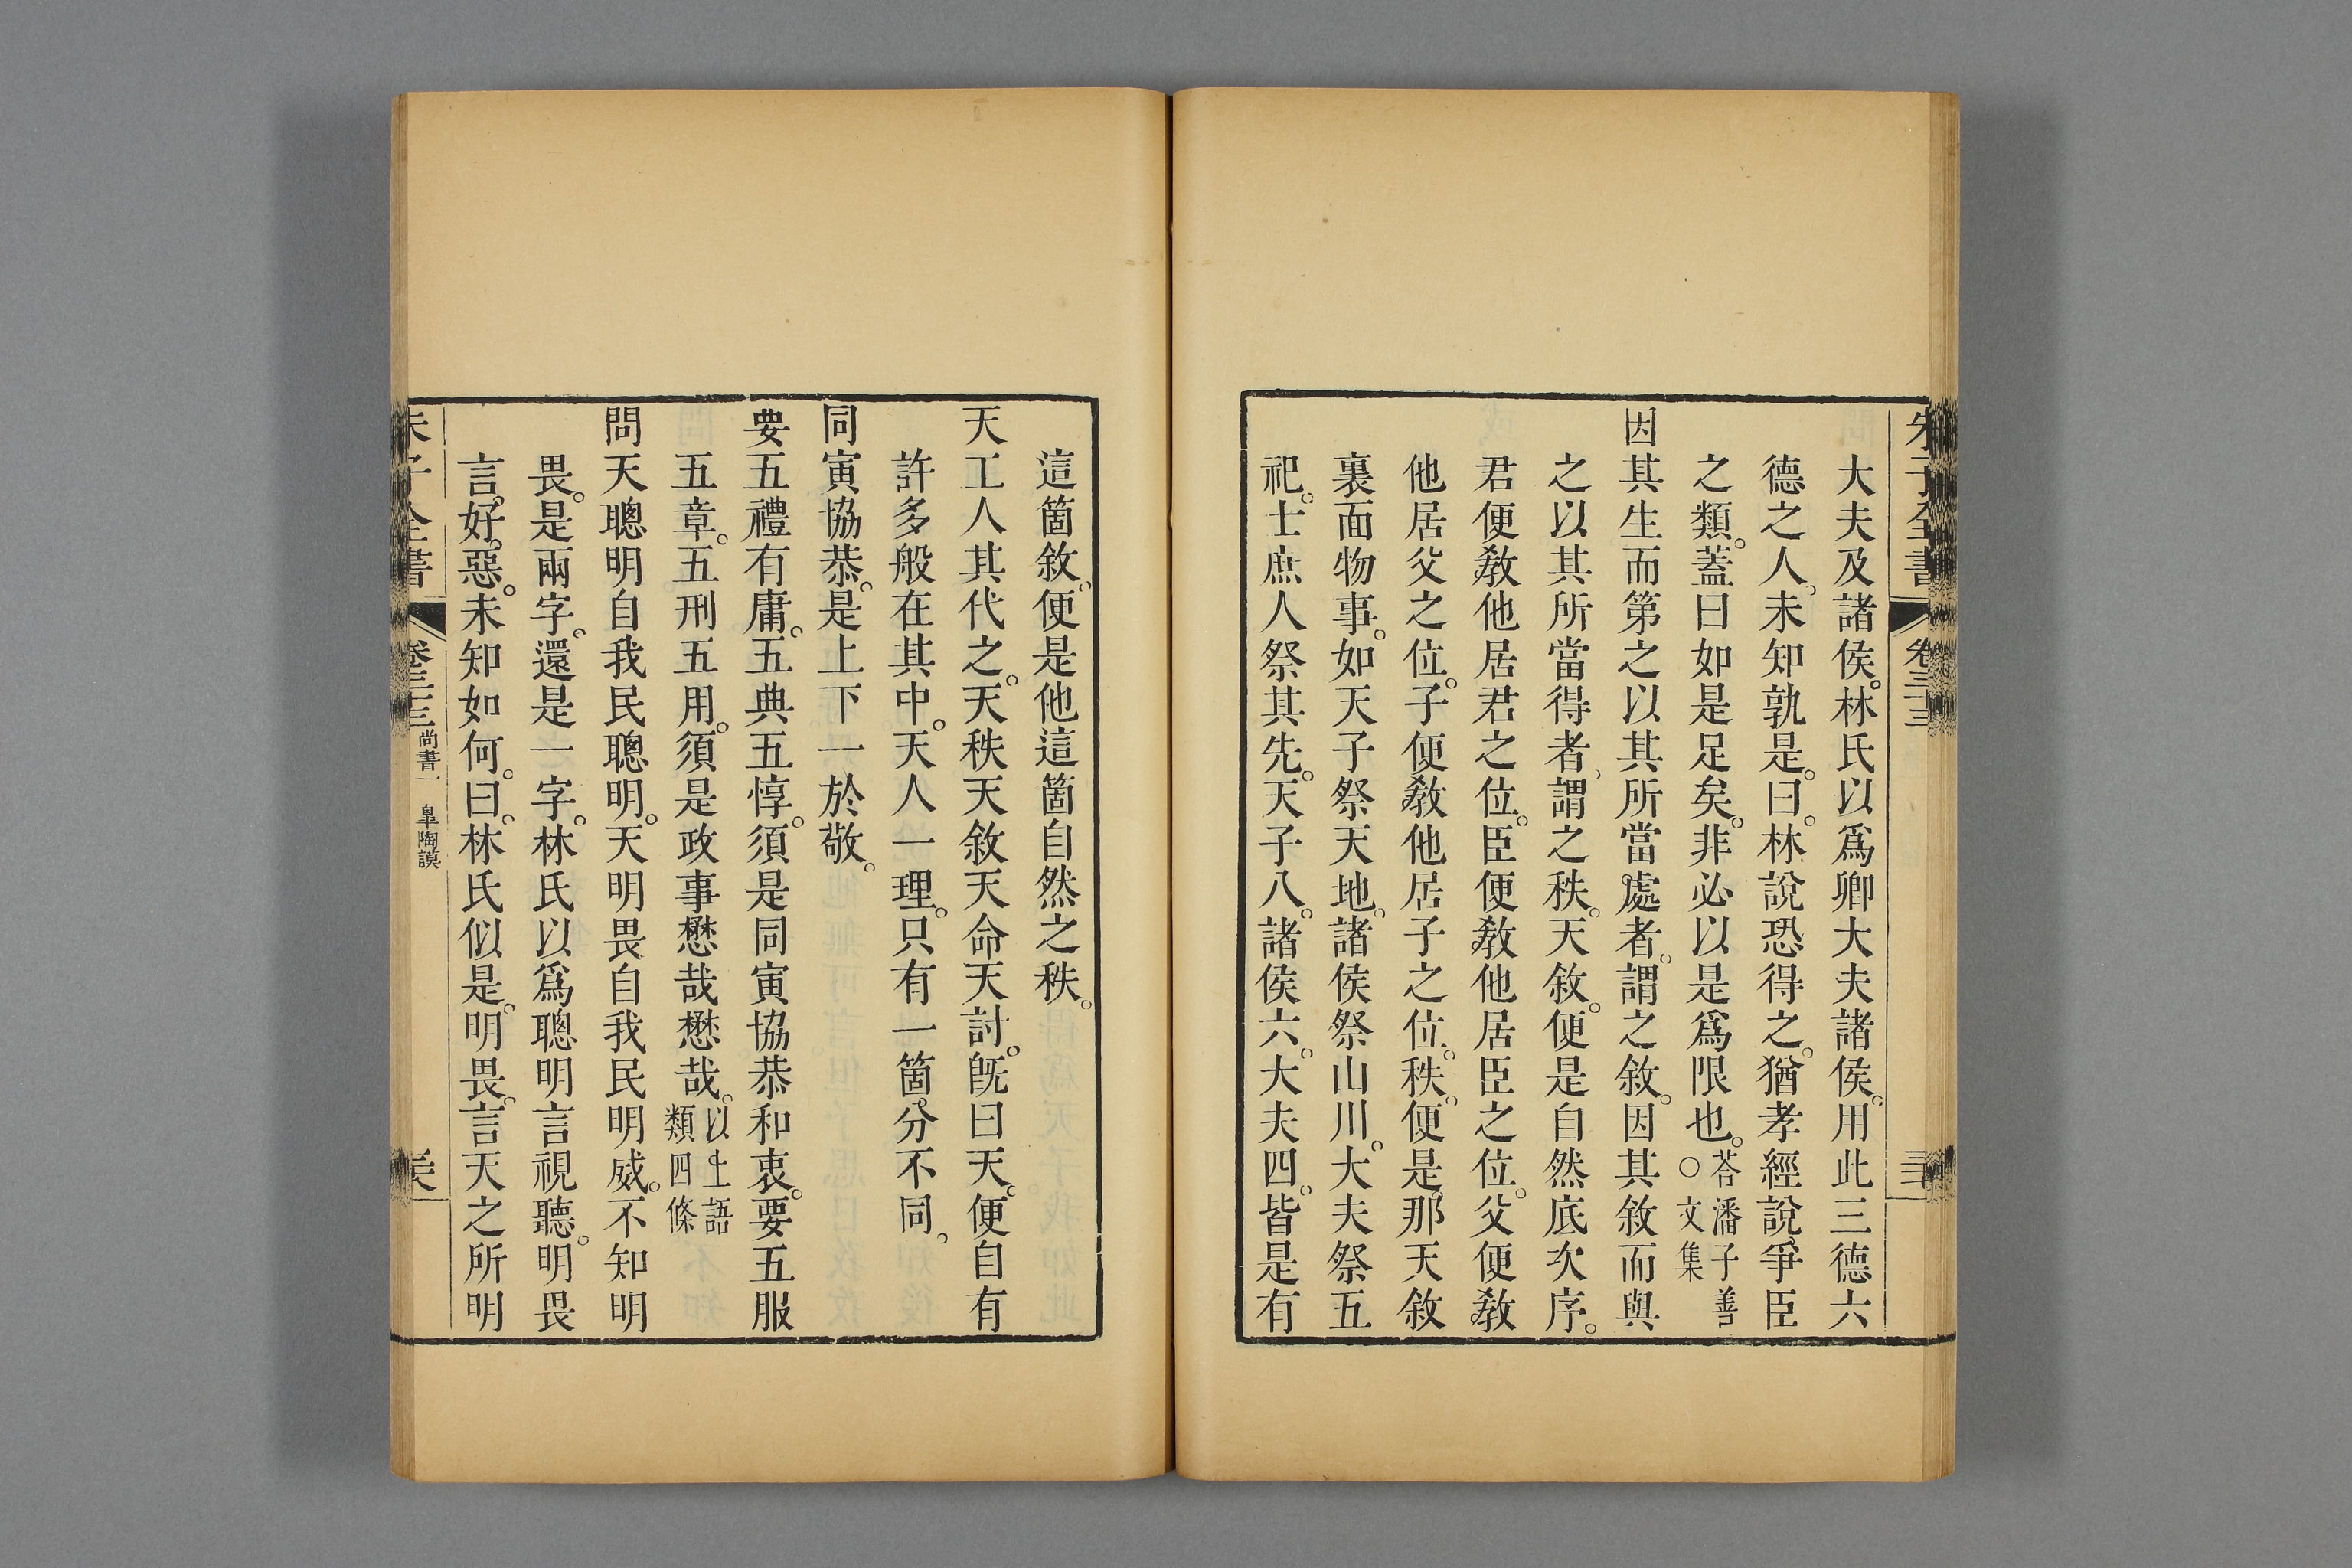 朱子全書 卷三十三
大夫及諸侯。林氏以爲卿大夫諸侯。用此三德六
德之人。未知孰是。曰。林說恐得之。猶孝經說爭臣
之類。蓋曰如是足矣。非必以是爲限也。○荅潘子善 文集
因其生而第之以其所當處者。謂之敘。因其敘而與
之以其所當得者、謂之秩。天敘。便是自然底次序。
君便敎他居君之位。臣便敎他居臣之位。父便敎
他居父之位。子便敎他居子之位。秩。便是那天敘
裏面物事。如天子祭天地。諸侯祭山川。大夫祭五
祀。士庶人祭其先。天子八。諸侯六。大夫四。皆是有
這箇敘。便是他這箇自然之秩。
天工人其代之。天秩天敘天命天討。旣曰天。便自有
許多般在其中。天人一理。只有一箇分不同。
同寅協恭。是上下一於敬。
要五禮有庸。五典五惇。須是同寅協恭和衷。要五服
五章。五刑五用。須是政事懋哉懋哉。以上語類四條
問天聰明自我民聰明。天明畏自我民明威。不知明
畏。是兩字。還是一字。林氏以爲聰明言視聽。明畏
言。好。惡。未知如何。曰。林氏似是。明畏。言天之所明
朱子全書 卷三十三 尚書一 皐陶謨